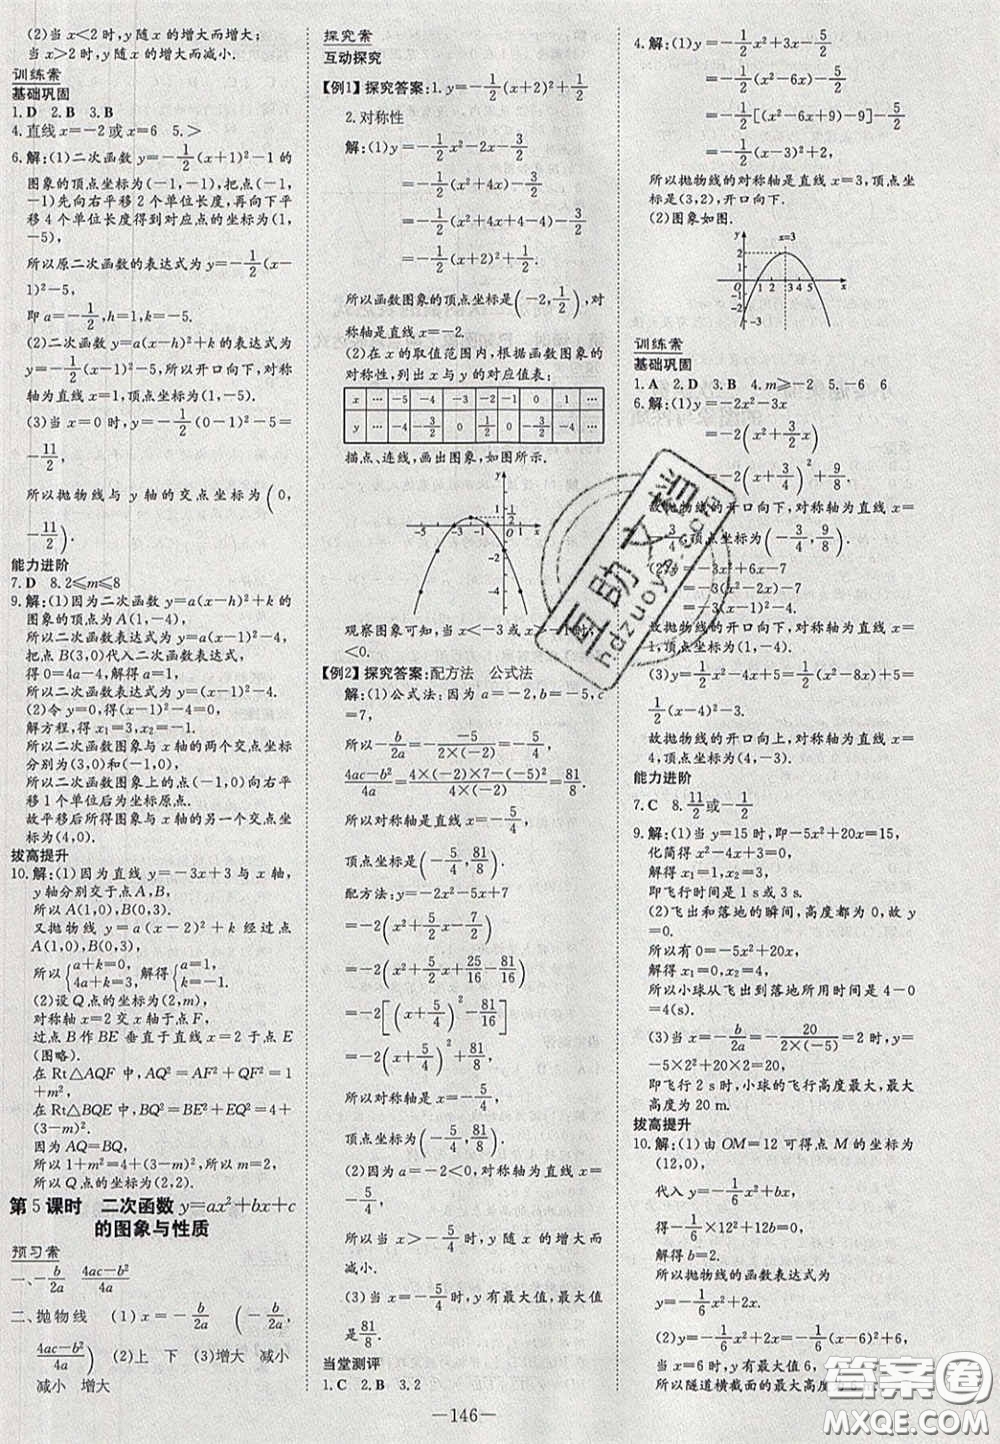 (2)当x<2时,y随x的增大而增大;
当x>2时,y随x的增大而减小.
训练案
基础巩固
1.D 2.B 3.B
4.直线x=-2或x=6 5.>
6.解:(1)二次函数y=-1/2(x+1)²-1的
图象的顶点坐标为(-1,-1),把点(-1,
-1)先向右平移2个单位长度,再向下平
移4个单位长度得到对应点的坐标为(1,
-5),
所以原二次函数的表达式为y=-1/2(x-
1)²-5,
即a=-1/2,h=1,k=-5.
(2)二次函数y=a(x-h)²+k,即
y=-1/2(x-1)²-5,所以开口向下,对称
轴为直线x=1,顶点坐标为(1,-5).
(3)当x=0时,y=-1/2(0-1)²-5=
-11/2,
所以抛物线与y轴的交点坐标为(0,
-11/2).
能力进阶
7.D 8.2≤m≤8
9.解:(1)因为二次函数y=a(x-h)²+k的
图象的顶点为A(1,-4),
所以二次函数表达式为y=a(x-1)²-4,
把点B(3,0)代入二次函数表达式,
得0=4a-4,解得a=1,
所以二次函数表达式为y=(x-1)²-4.
(2)令y=0,得(x-1)²-4=0,
解方程,得x₁=3,x₂=-1.
所以二次函数图象与x轴的两个交点坐标
分别为(3,0)和(-1,0),
所以二次函数图象上的点(-1,0)向右平
移1个单位后为坐标原点.
故平移后所得图象与x轴的另一个交点坐
标为(4,0).
拔高提升
10.解:(1)因为直线y=-3x+3与x轴,
y轴分别交于点A,B,
所以A(1,0),B(0,3).
又抛物线y=a(x-2)²+k经过点
A(1,0),B(0,3),
所以{a+k=0, 4a+k=3, 解得{a=1, k=-1.
(2)设Q点的坐标为(2,m),
对称轴x=2交x轴于点F,
过点B作BE垂直于直线x=2于点E
(图略).
在Rt△AQF中,AQ²=AF²+QF²=
1+m²,
在Rt△BQE中,BQ²=BE²+EQ²=4+
(3-m)².
因为AQ=BQ,
所以1+m²=4+(3-m)²,所以m=2,
所以Q点的坐标为(2,2).
第5课时 二次函数y=ax²+bx+c
的图象与性质
预习案
一、-b/2a (4ac-b²)/4a
二、抛物线 (1)x=-b/2a (-b/2a,
(4ac-b²)/4a) (2)上 下 (3)增大 减小
减小 增大
探究案
互动探究
【例1】探究答案:1.y=-1/2(x+2)²+1/2
2.对称性
解:(1)y=-1/2x²-2x-3/2
=-1/2(x²+4x)-3/2
=-1/2(x²+4x+4-4)-3/2
=-1/2(x+2)²+1/2.
所以函数图象的顶点坐标是(-2,1/2),对
称轴是直线x=-2.
(2)在x的取值范围内,根据函数图象的
对称性,列出x与y的对应值表:
x … -5 -4 -3 -2 -1 0 1 …
y … -4 -3/2 0 1/2 0 -3/2 -4 …
描点、连线,画出图象,如图所示.
观察图象可知,当x<-3或x>-1时,y
<0.
【例2】探究答案:配方法 公式法
解:(1)公式法:因为a=-2,b=-5,c
=7,
所以-b/2a=--5/(2×(-2))=-5/4,
(4ac-b²)/4a=(4×(-2)×7-(-5)²)/(4×(-2))=81/8.
所以对称轴是直线x=-5/4,
顶点坐标是(-5/4,81/8).
配方法:y=-2x²-5x+7
=-2(x²+5/2x-7/2)
=-2(x²+5/2x+25/16-25/16-7/2)
=-2[(x+5/4)²-81/16]
=-2(x+5/4)²+81/8,
所以对称轴是直线x=-5/4,
顶点坐标为(-5/4,81/8).
(2)因为a=-2<0,对称轴为直线x=
-5/4,
所以当x>-5/4时,y随x的增大而
减小.
(3)当x=-5/4时,y有最大值,最大值
是81/8.
当堂测评
1.C 2.B 3.2
4.解:(1)y=-1/2x²+3x-5/2
=-1/2(x²-6x)-5/2
=-1/2[(x²-6x+9)-9]-5/2
=-1/2(x-3)²+2,
所以抛物线的对称轴是直线x=3,顶点坐
标是(3,2),开口向下.
(2)图象如图.
训练案
基础巩固
1.A 2.D 3.B 4.m≥-2 5.-6 6
6.解:(1)y=-2x²-3x
=-2(x²+3/2x)
=-2(x+3/4)²+9/8,
故抛物线的开口向下,对称轴为直线x=
-3/4,顶点坐标为(-3/4,9/8).
=-3(x-1)²-4,
故抛物线的开口向下,对称轴为直线x=
1,顶点坐标为(1,-4).
(3)y=1/2x²-4x+5=1/2(x²-8x)+5=
1/2(x-4)²-3.
故抛物线的开口向上,对称轴为直线x=
4,顶点坐标为(4,-3).
能力进阶
7.C 8.11/2或-1/2
9.解:(1)当y=15时,即-5x²+20x=15,
化简得x²-4x+3=0,
解得x₁=1,x₂=3.
即飞行时间是1s或3s.
(2)飞出和落地的瞬间,高度都为0,故y
=0.
所以有0=-5x²+20x,
解得x₁=0,x₂=4,
所以小球从飞出到落地所用时间是4-0
=4(s).
(3)当x=-b/2a=-20/(2×(-5))=2时,y=
-5×2²+20×2=20,
即飞行2s时,小球的飞行高度最大,最大
高度为20m.
拔高提升
10.解:(1)由OM=12可得点M的坐标为
(12,0),
代入y=-1/6x²+bx,得
-1/6×12²+12b=0,
解得b=2.
所以抛物线的函数表达式为
y=-1/6x²+2x.
(2)y=-1/6x²+2x=-1/6(x-6)²+6,
当x=6时,y有最大值6,
-146-
互助文档
hdzuoye.com
答案圈
MXQE.COM